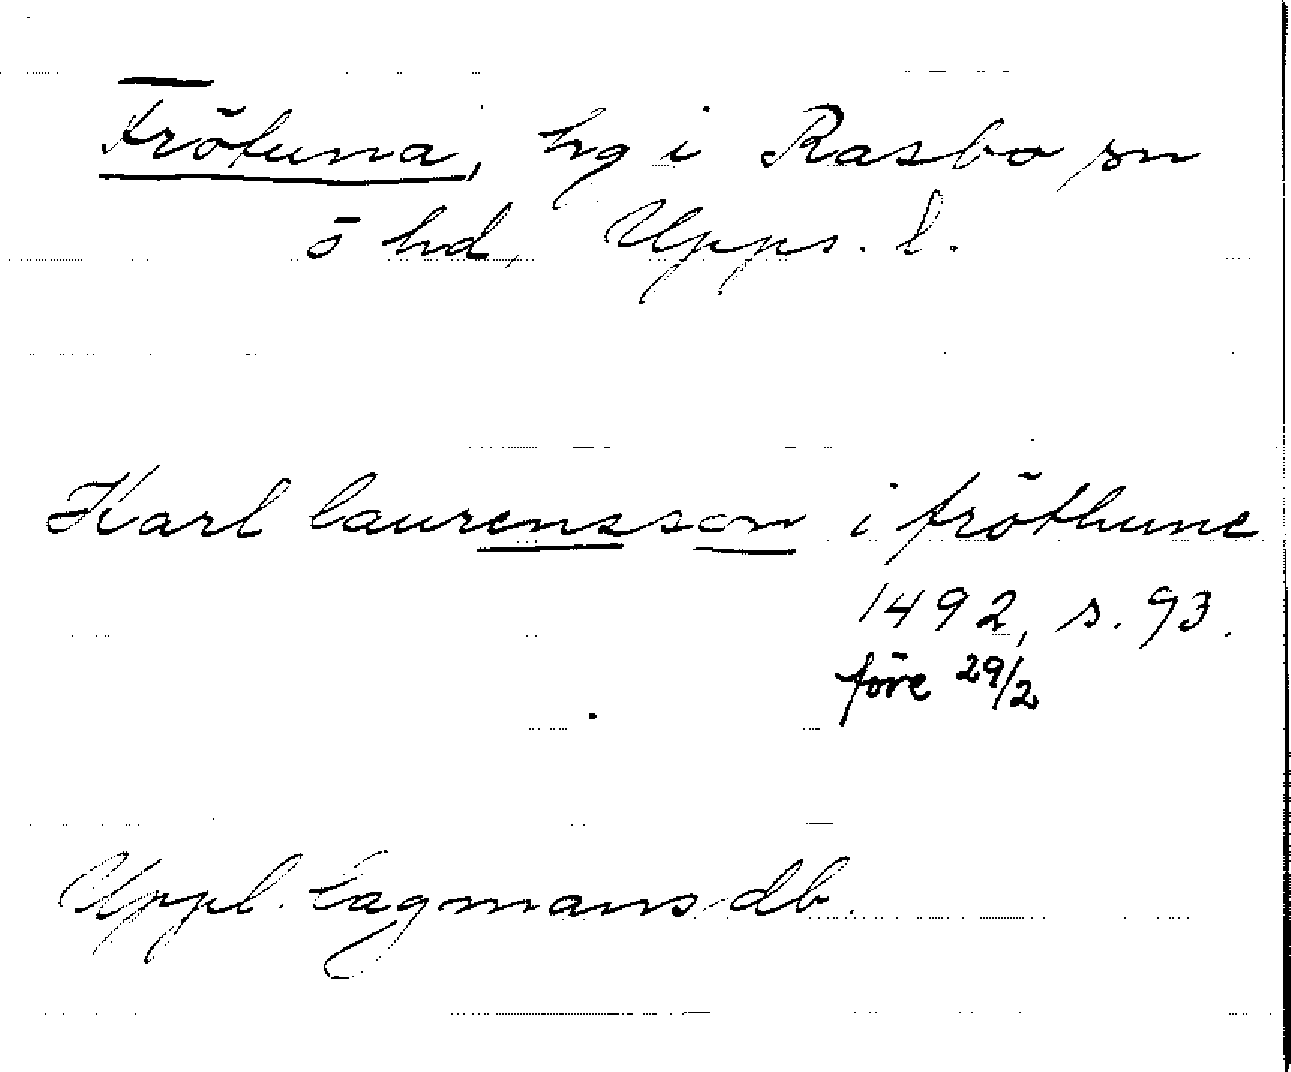 Frötuna, hg i Rasbo sn
ö hd, Upps. l.
Karl laurensson i fröthune
1492, s. 93.
före 29/2
Uppl. Lagmans db.